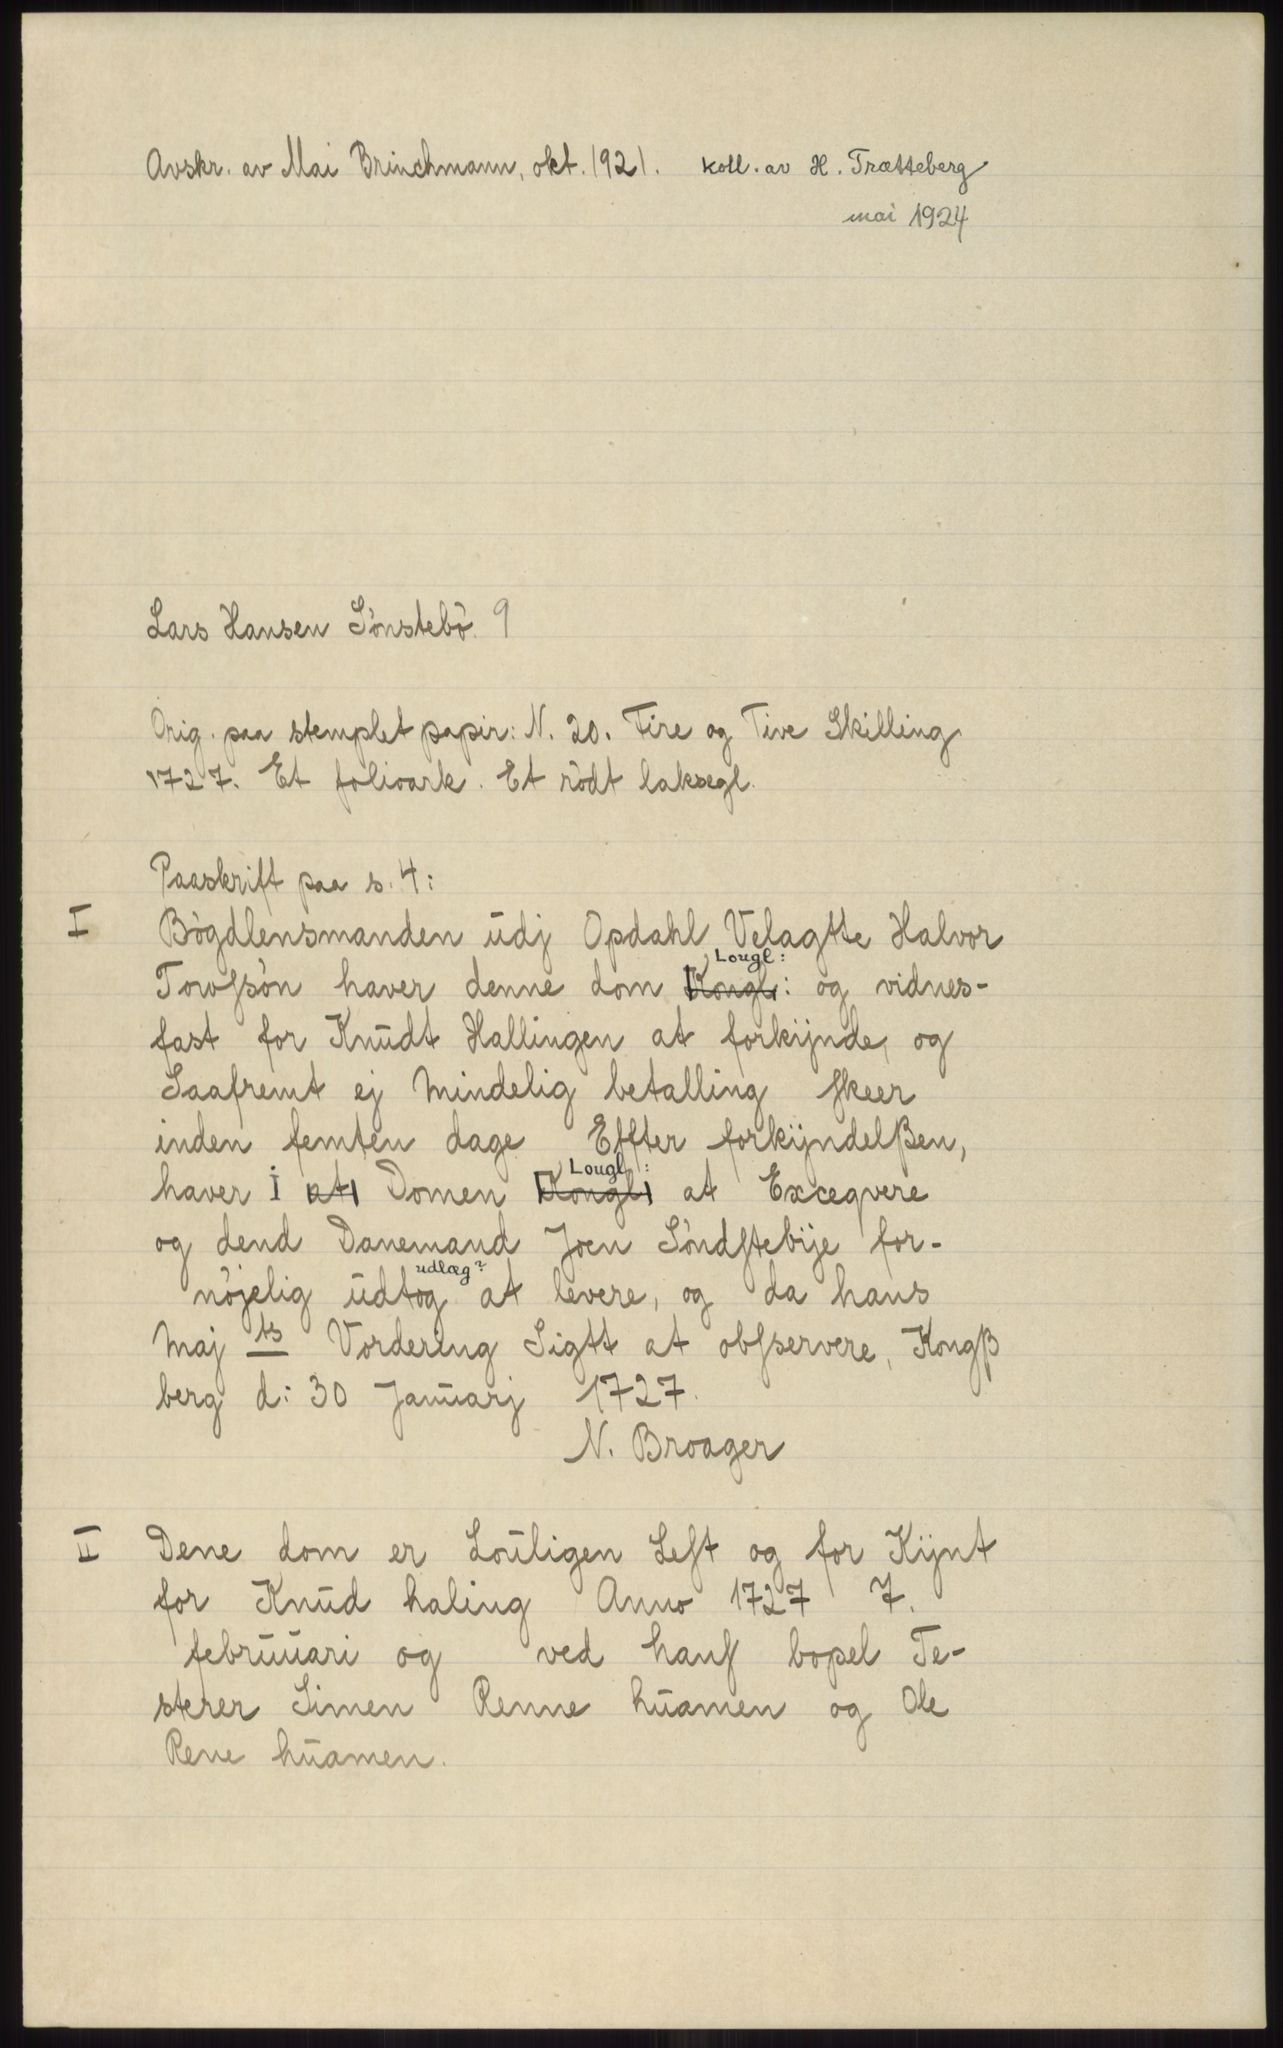 Avskr. av Mai Brinchmann, okt. 1921. koll. av H. Trætteberg
mai 1924
Lars Hansen Sönstebö 9
Orig. paa stemplet papir: N. 20. Fire og Tive Skilling
1727. Et folioark. Et rödt laksegl.
Paaskrift paa s. 4:
I Bögdlensmanden udj Opdahl Velagtte Halvor
Lougl:
Towfsön haver denne dom Kongl: og vidnes-
fast for Knudt Hallingen at forkijnde, og
Saafremt ej Mindelig betalling skeer
inden femten dage Effter forkijndelßen,
Lougl:
haver I at Domen Kongl at Exceqvere
og dend Danemand Joen Söndstebije for-
udlæg?
nöjelig udtog at levere, og da hans
Maj ts Vordering Sigtt at obfservere, Kongß
berg d: 30 Januarj 1727.
N. Broager
II Dene dom er Louligen Lest og for Kijnt
for Knud haling Anno 1727 7.
februuari og ved hans bopel Te-
sterer Simen Renne huamen og Ole
Rene huamen.